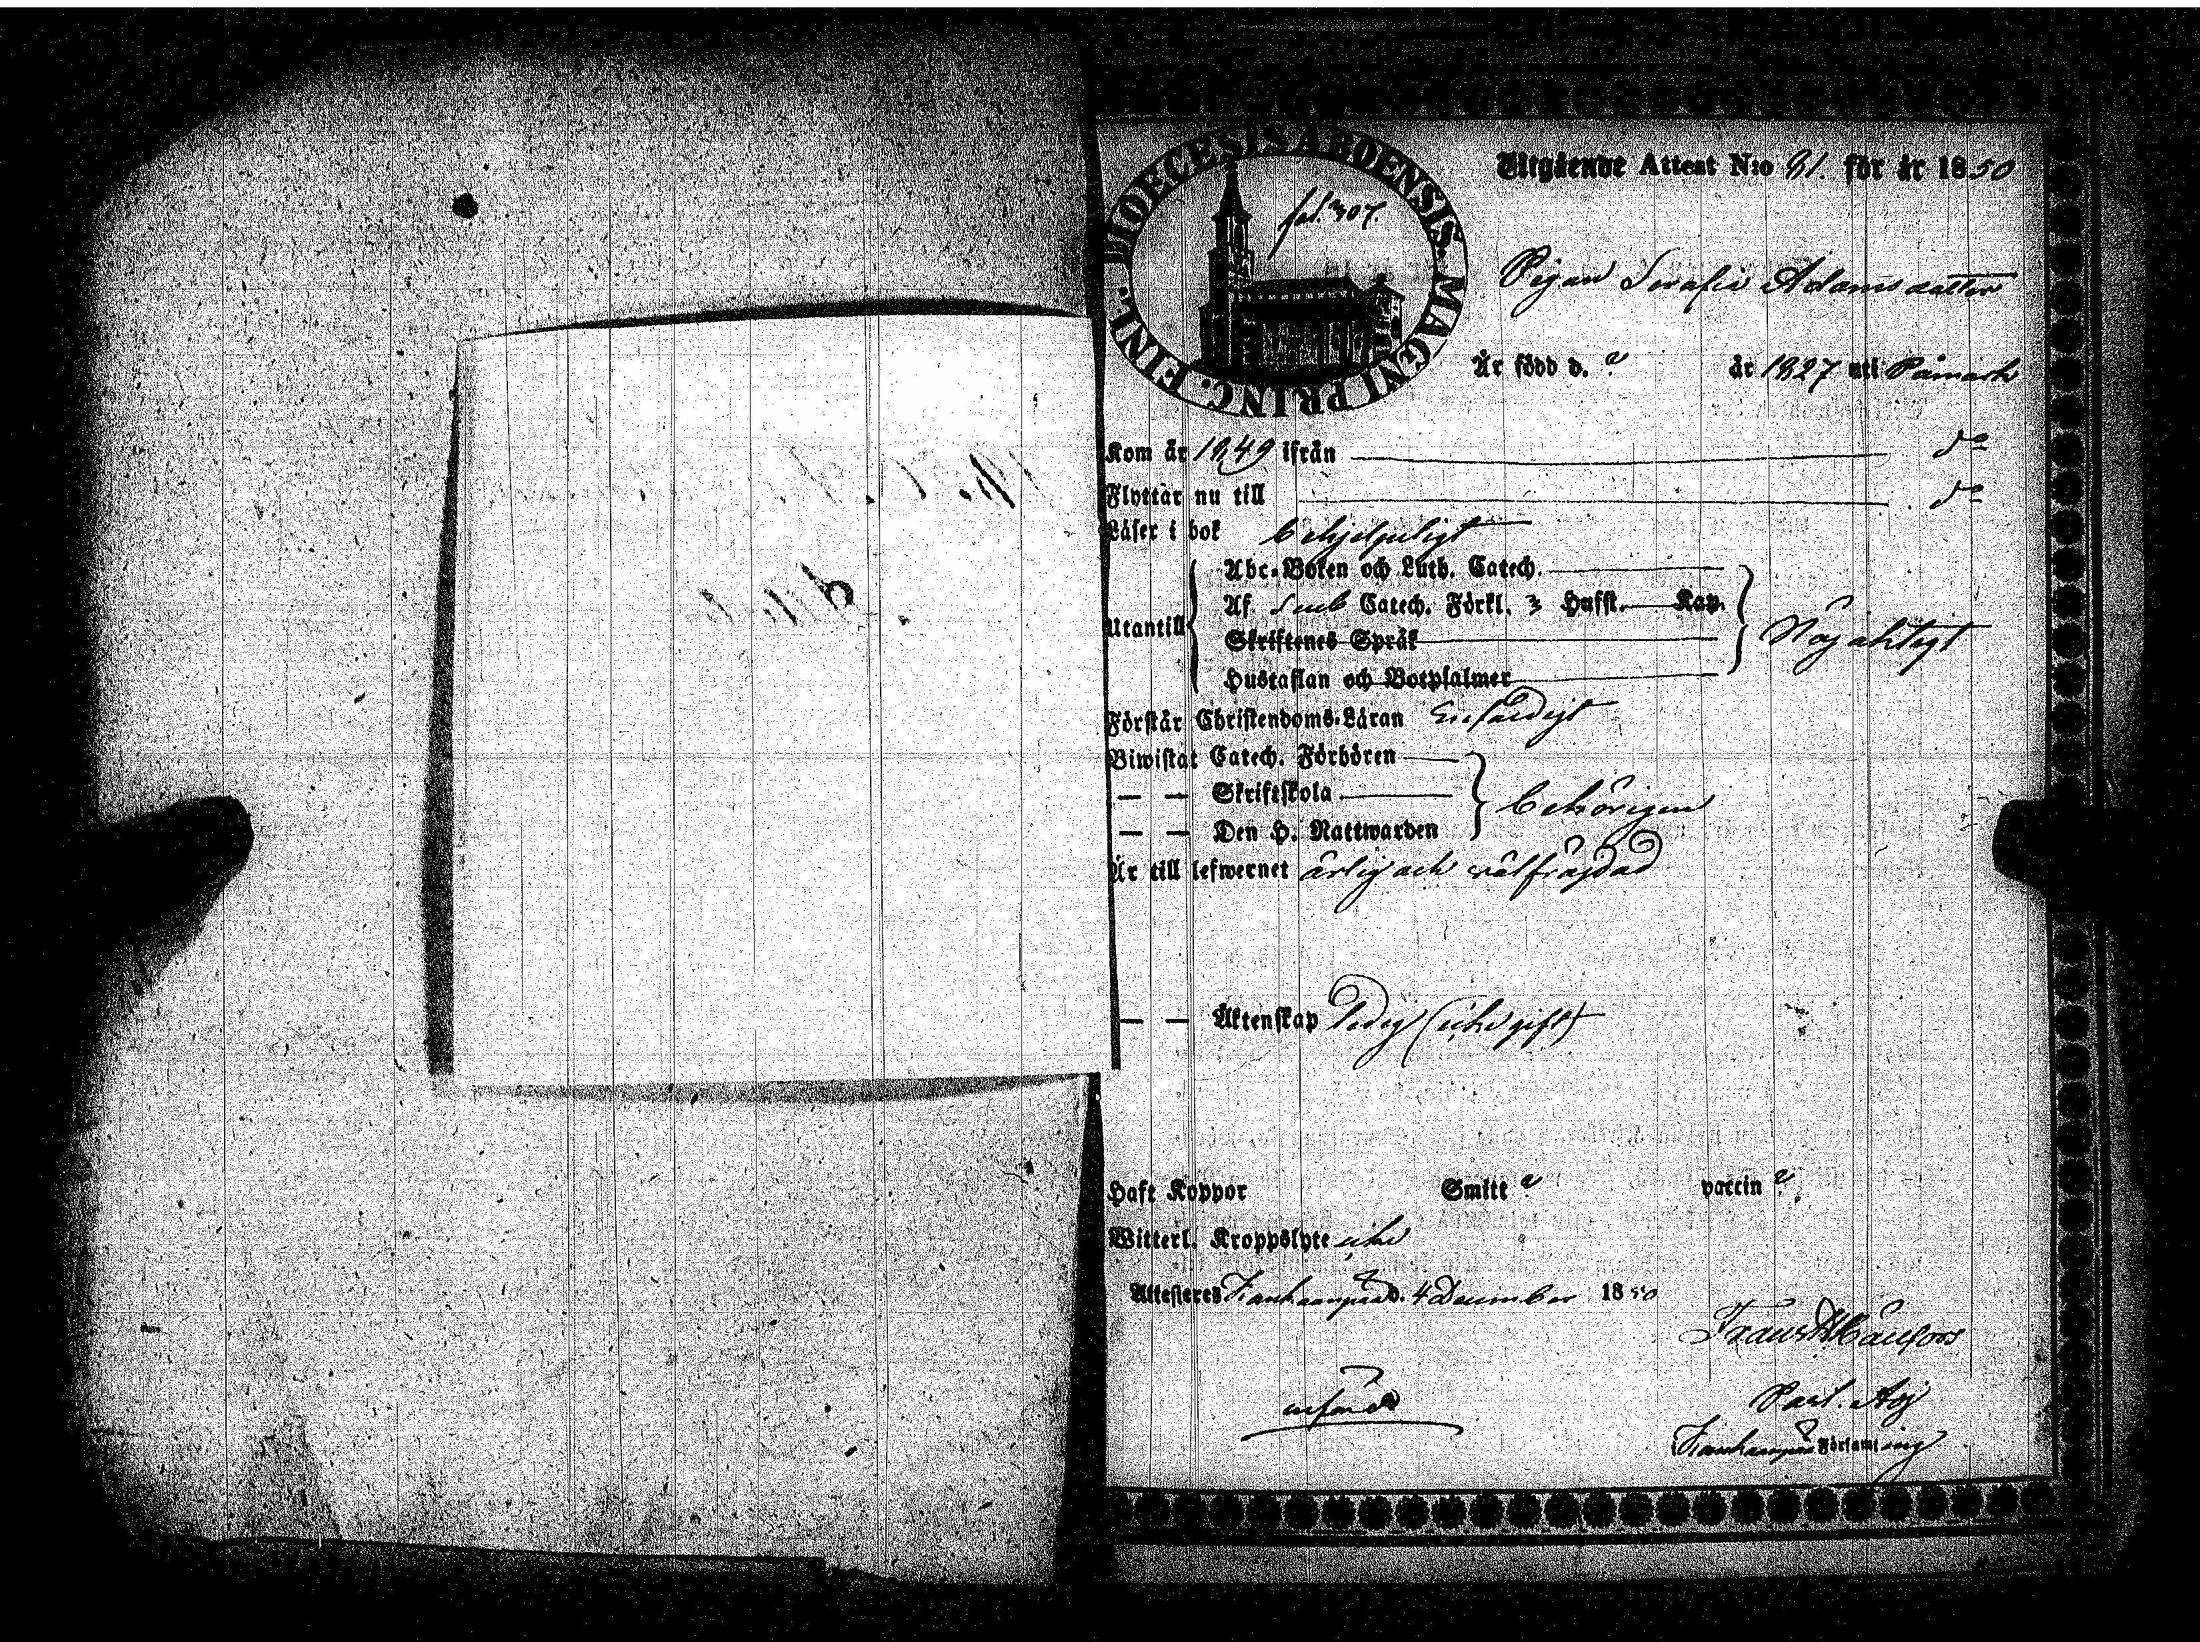 DIOECESIS ABOENSIS. MAGNI PRINC. FINL.
fol. 307.
Utgående Attest N:o 81. för år 1850
Pigan Serafia Adamsdotter
Är född d. ? år 1827 uti Påmark
Kom år 1849 ifrån do
Flyttar nu till do
Läser i bok behjelpeligt
Abc-Boken och Luth. Catech.
Af Catech. Förkl. 3 Hufst. Kap.
Utantill
Skriftenes Språk
Nöjaktigt
Hustaflan och Botpsalmer
Förstår Christendoms-Läran Enfaldigt
Biwistat Catech. Förhören
— — Skriftskola
behörigen
— — Den H. Nattwarden
Är till lefwernet ärlig och välfrägdad
— — Äktenskap ledig (icke gift)
Haft Koppor Smitt ? vaccin ?
Witterl. Kroppslyte icke
Attesteras Kankaanpää d. 4 December 1850
Frans
Past. Adj
Kankaanpää Församling